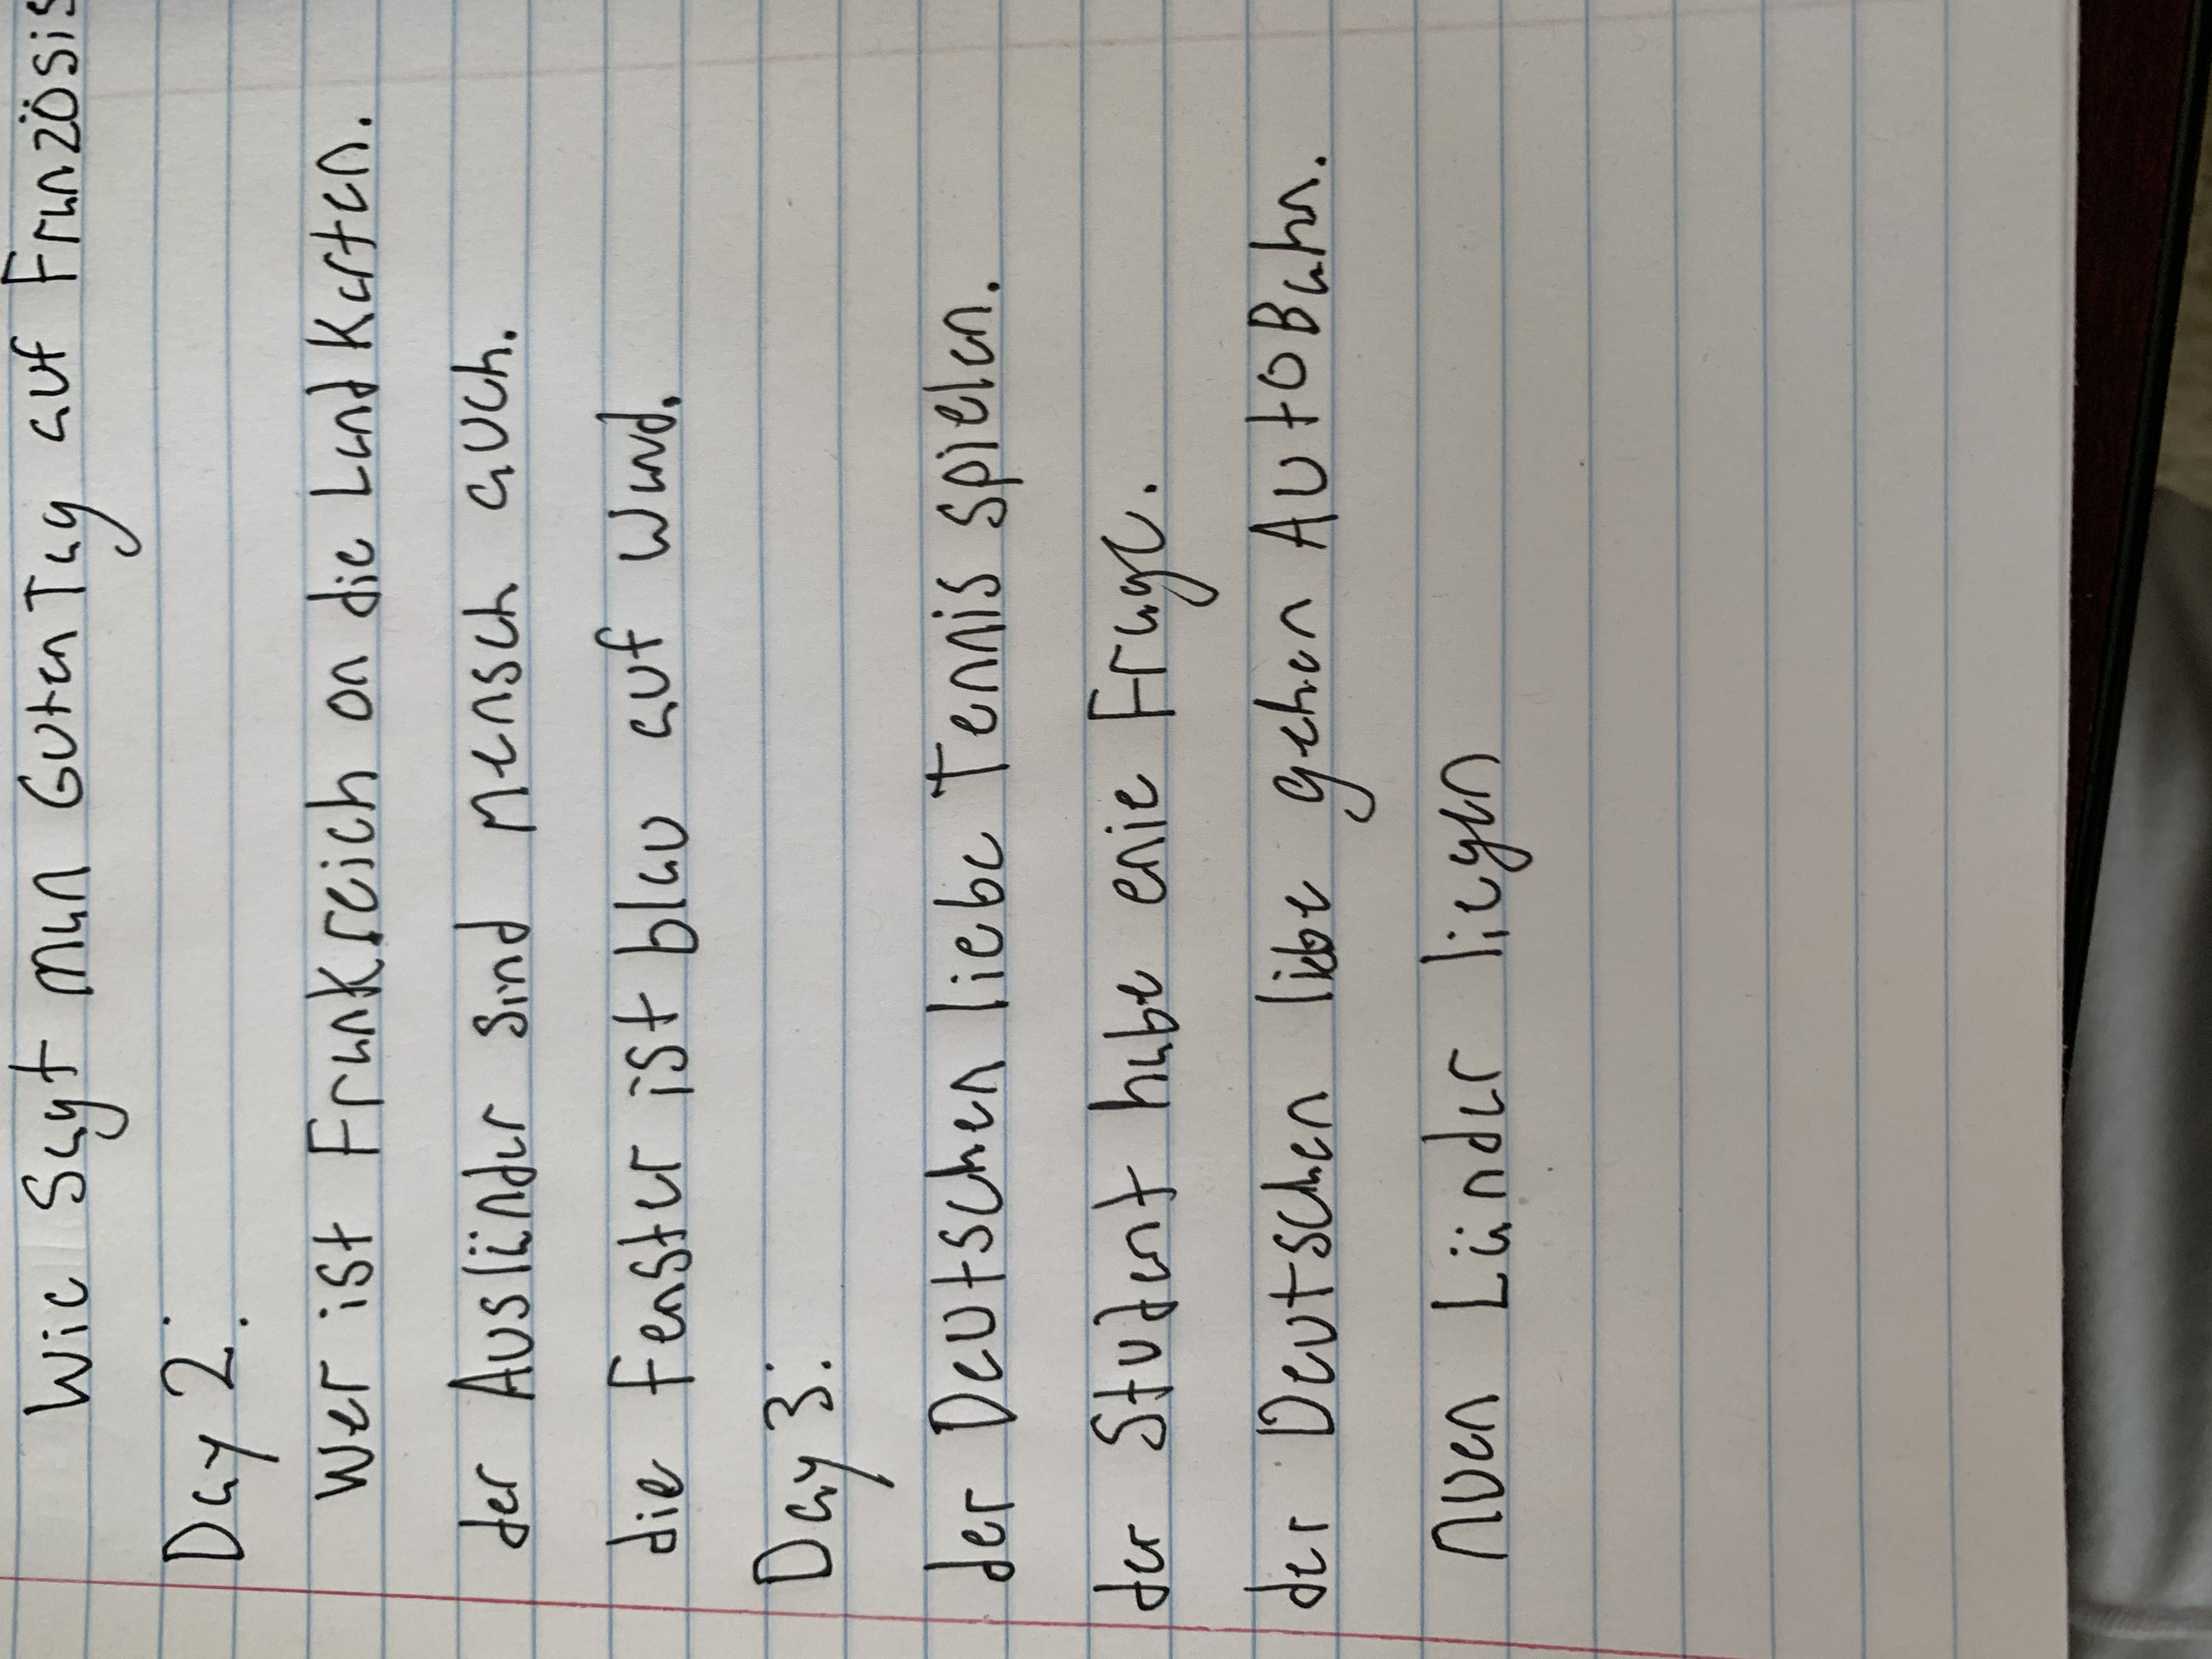 Wie sagt man Guten Tag auf Französis
Day 2:
Wer ist Frankreich on die Land Karten.
der Ausländer sind Mensch auch.
die Fenster ist blau auf Wand.
Day 3:
der Deutschen liebe Tennis spielen.
der Student habe enie Frage.
der Deutschen liebe gehen AutoBahn.
nuen Länder liegen